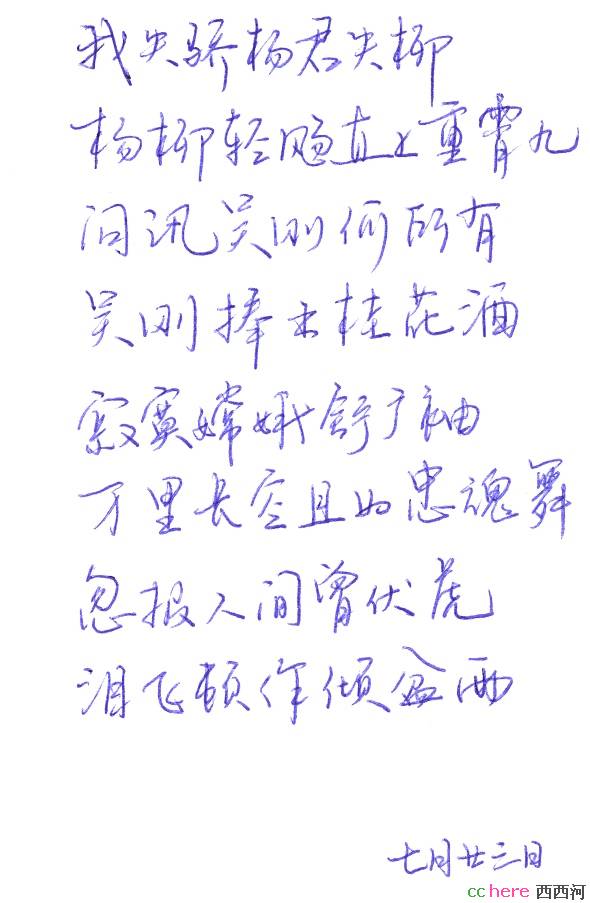 我失骄杨君失柳
杨柳轻飏直上重霄九
问讯吴刚何所有
吴刚捧出桂花酒
寂寞嫦娥舒广袖
万里长空且为忠魂舞
忽报人间曾伏虎
泪飞顿作倾盆雨
七月廿三日
cchere 西西河